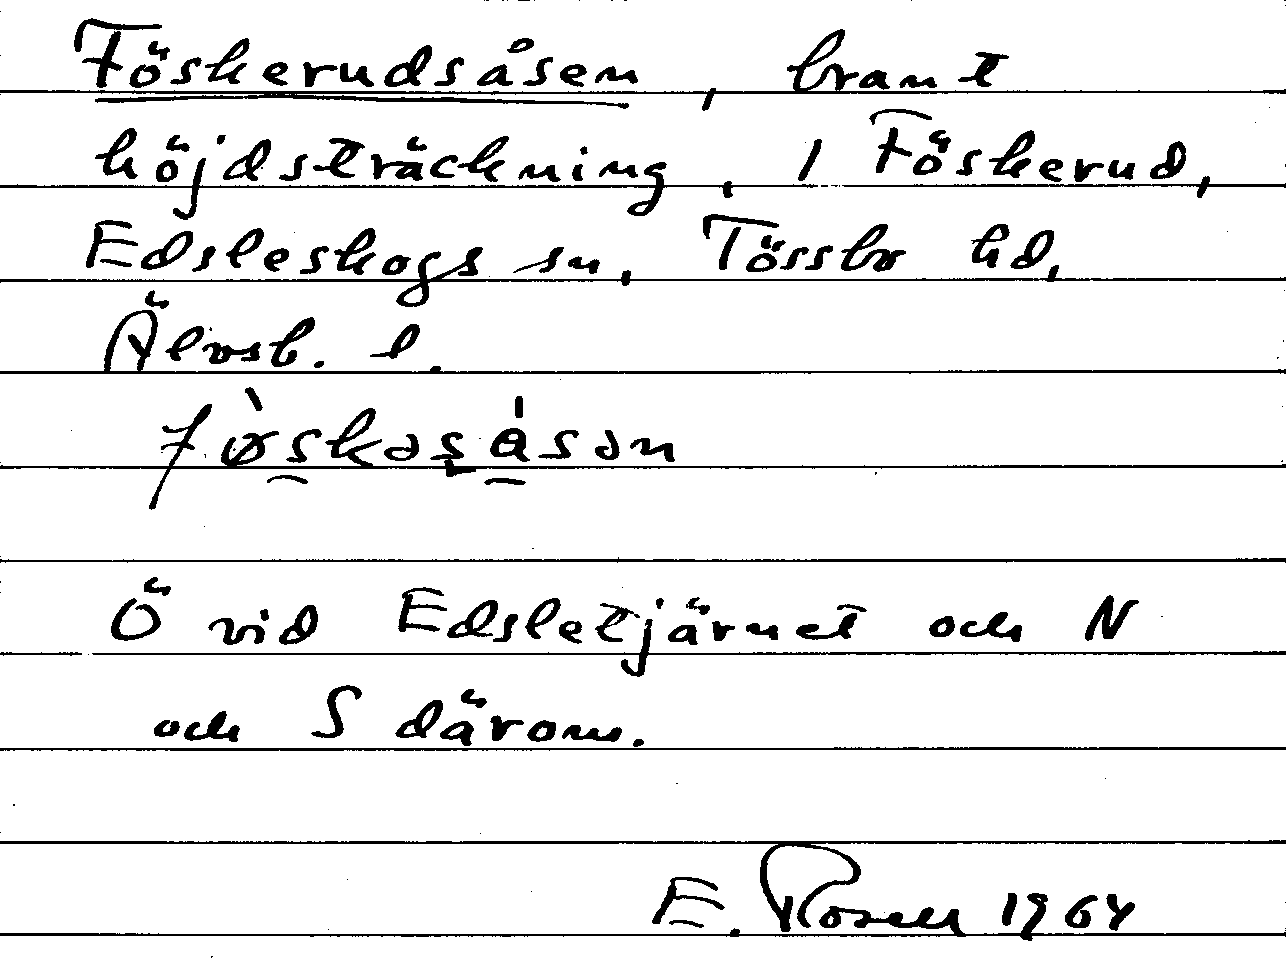 Föskerudsåsen, brant
höjdsträckning, i Föskerud,
Edsleskogs sn, Tössbo hd,
Älvsb. l.
fø̀skasåsan
Ö vid Edsletjärnet och N
och S därom.
E. Rosell 1964